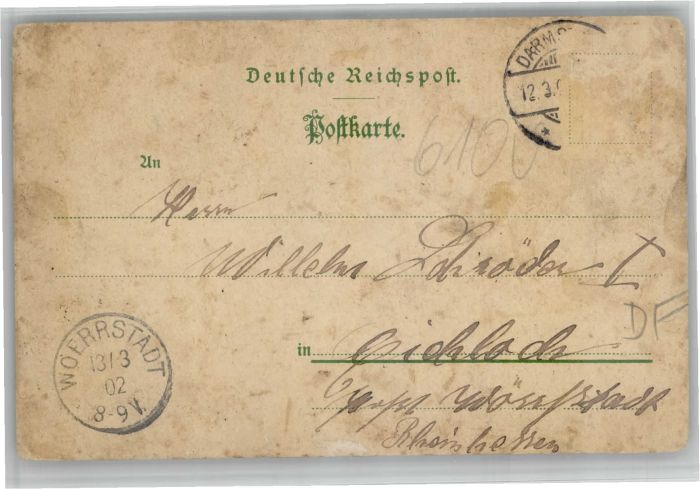 Deutsche Reichspost.
Postkarte.
DARMS
12.3.0
6100
An
Herrn
Wilhelm Schröder I
DF
in Eichloch
Post Wörrstadt
Rheinhessen
WOERRSTADT
13/3
02
8-9V.